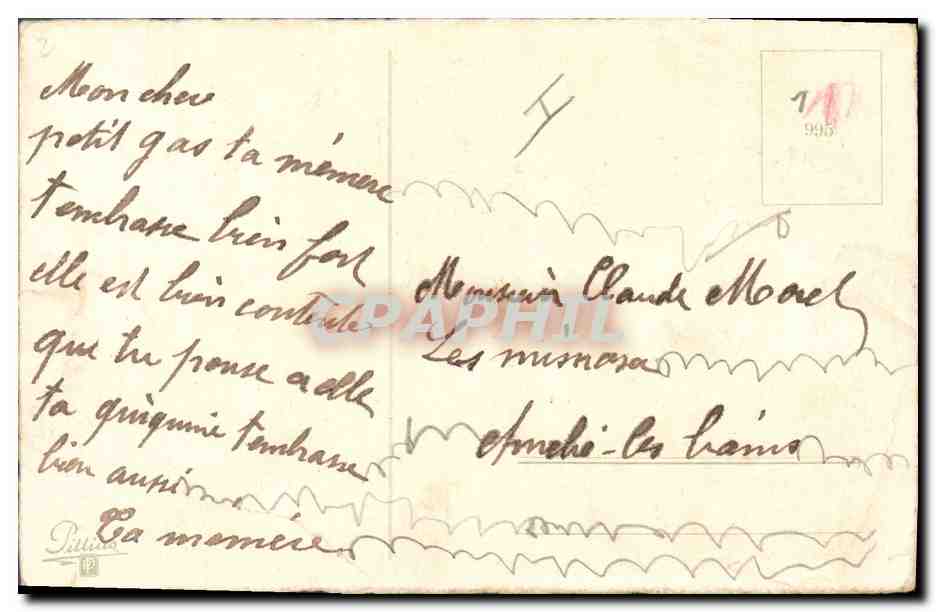 Mon cher
petit gas ta mémere
t'embrasse bien fort
elle est bien contente
que tu pense a elle
ta quiquine t'embrasse
bien aussi
Ta memére
Monsieur Claude Morel
Les mimosa
les bains
995
CPARAMA